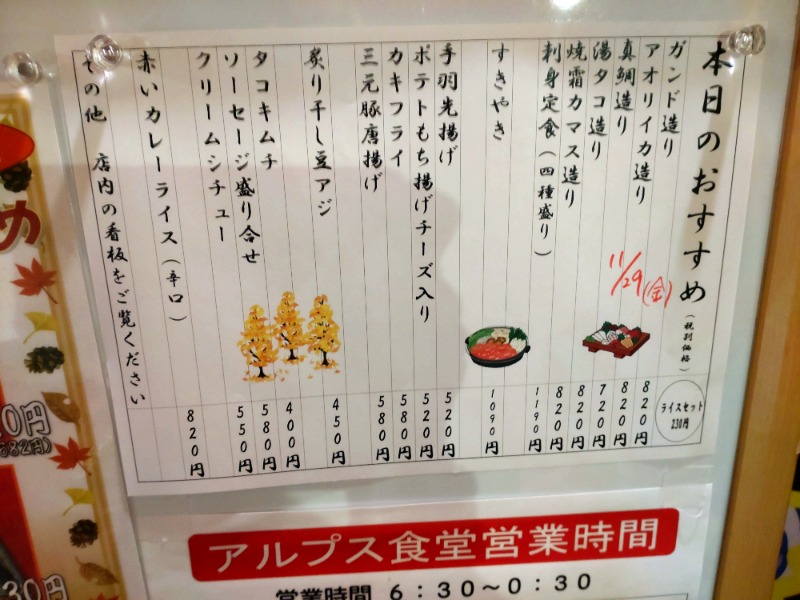 本日のおすすめ(税別価格)
11/29(金)
ライスセット
230円
ガンド造り 820円
アオリイカ造り 820円
真鯛造り 720円
湯タコ造り 820円
焼霜カマス造り 820円
刺身定食(四種盛り) 1190円
すきやき 1090円
手羽先揚げ 520円
ポテトもち揚げチーズ入り 520円
カキフライ 580円
三元豚唐揚げ 580円
炙り干し豆アジ 450円
タコキムチ 400円
ソーセージ盛り合せ 580円
クリームシチュー 550円
赤いカレーライス(辛口) 820円
その他 店内の看板をご覧ください
アルプス食堂営業時間
営業時間 6:30~0:30
0円
682円)
30円